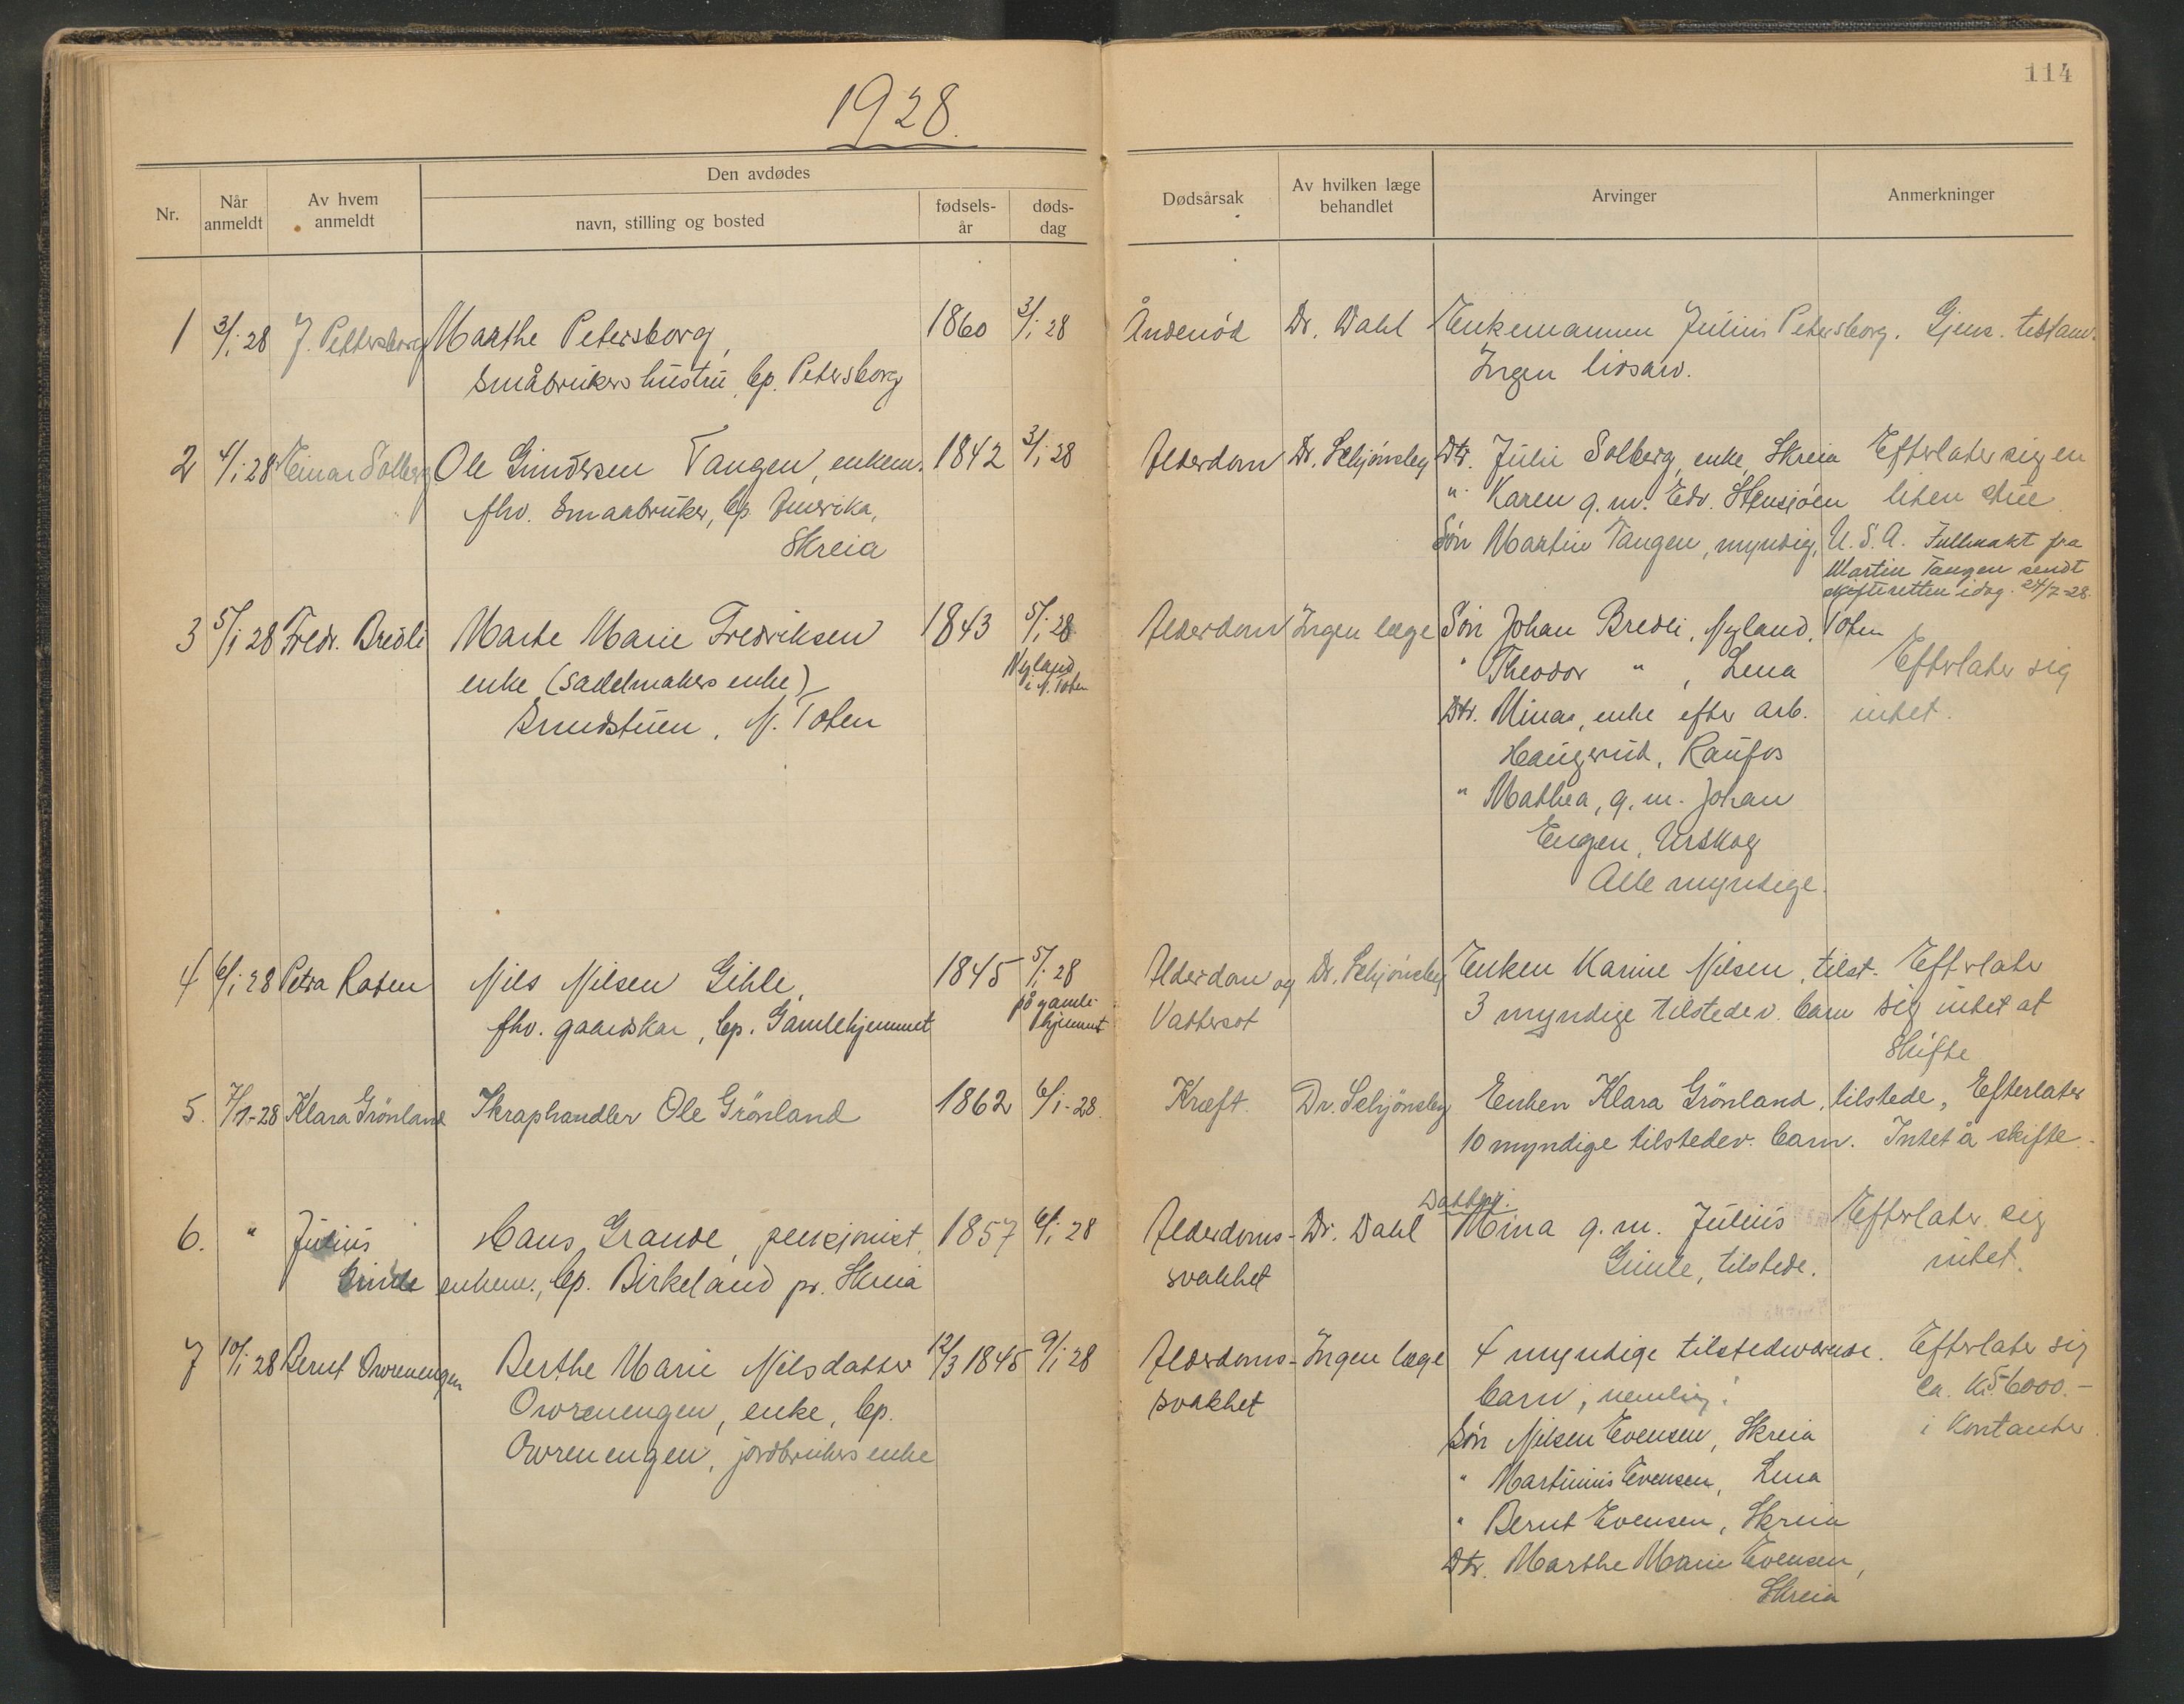 1928.
114
Nr.
Når anmeldt
Av hvem anmeldt
Den avdødes
navn, stilling og bosted
fødsels-år
døds-dag
Dødsårsak
Av hvilken læge behandlet
Arvinger
Anmerkninger
1 3/1 28 J. Pettersborg Marthe Petersborg, 1860 3/1 28 Åndenød Dr. Dahl Enkemannen Julius Petersborg. Gjens. testam.
småbrukers hustru, bp. Petersborg Ingen livsarv.
2 4/1 28 Einar Solberg Ole Gundersen Tangen, enkem. 1842 3/1 28 Alderdom Dr. Schjönsby Dtr. Julie Solberg, enke, Skreia Efterlater sig en
fhv. Smaabruker, bp. Amerika, " Karen g.m. Edv. Stensjöen liten stue
Skreia Søn Martin Tangen, myndig, U.S.A. Fullmakt fra
Martin Tangen sendt
skifteretten idag. 24/7-28.
3 5/1 28 Fredr. Bredli Marte Marie Fredriksen 1843 5/1 28. Alderdom Ingen læge Søn Johan Bredli, Nyland, Toten
enke (sadelmakers enke) Nyland i V. Toten " Theodor " , Lena Efterlater sig
Brudstuen, V. Toten Dtr. Mina, enke efter arb. intet.
Haugerud, Raufos
" Mathea, g.m. Johan
Engen, Urskog
Alle myndige.
4 6/1 28 Petra Roten Nils Nilsen Gihle, 1845 5/1 28 Alderdom og Dr. Schjönsby Enken Karine Nilsen, tilst. Efterlater
fhv. gaardskar, bp. Gamlehjemmet på gamle-hjemmet Vattersot 3 myndige tilstedev. barn sig intet at
Skifte
5. 7/1-28 Klara Grönland Skraphandler Ole Grönland 1862 6/1-28. Kræft. Dr. Schjönsby Enken Klara Grönland, tilstede, Efterlater
10 myndige tilstedev. barn. Intet å skifte.
Datter:
6. " Julius Hans Grande, pensjonist, 1857 6/1 28 Alderdoms- Dr. Dahl Mina g.m. Julius Efterlater sig
enkem., bp. Birkeland pr. Skreia svakhet Gimle, tilstede. intet.
7 10/1 28 Bernt Owrenengen Berthe Marie Nilsdatter 12/3 1845 9/1 28 Alderdoms- Ingen læge 4 myndige tilstedeværende. Efterlater sig
Owrenengen, enke, bp. svakhet barn, nemlig: ca. Kr. 56000.-
Owrenengen, jordbrukers enke Søn Nilsen Evensen, Skreia i Kontanter.
" Martinius Evensen, Lena
" Bernt Evensen, Skreia
Dtr. Marthe Marie Evensen,
Skreia